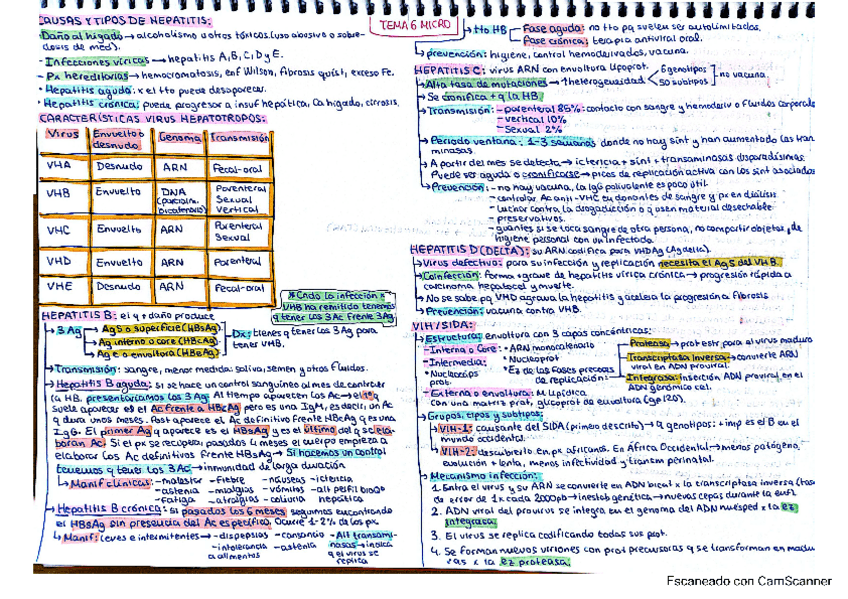 TEMA 6 MICRO
CAUSAS Y TIPOS DE HEPATITIS:
· Daño al hígado → alcoholismo u otros tóxicos. (uso abusivo o sobre-
dosis de med).
- Infecciones víricas → hepatitis A, B, C, D y E.
- Px hereditarias → hemocromatosis, enf Wilson, fibrosis quíst, exceso Fe.
· Hepatitis aguda: x el tto puede desaparecer.
· Hepatitis crónica: puede progresar a insuf hepática, Ca hígado, cirrosis.
CARACTERÍSTICAS VIRUS HEPATOTROPOS:
Virus Envuelto o desnudo Genoma Transmisión
VHA Desnudo ARN Fecal-oral
VHB Envuelto DNA Parenteral Sexual Vertical
VHC Envuelto ARN Parenteral Sexual
VHD Envuelto ARN Parenteral
VHE Desnudo ARN Fecal-oral
* Cndo la infección x
VHB ha remitido tenemos
q tener los 3 Ac frente 3 Ag
HEPATITIS B: el q + daño produce
→ 3 Ag → Ag S o superficie (HBsAg)
→ Ag interno o core (HBcAg)
→ Ag e o envoltura (HBeAg)
Dx: tienes q tener los 3 Ag para
tener VHB.
→ Transmisión: sangre, menor medida: saliva, semen y otros fluidos.
→ Hepatitis B aguda: si se hace un control sanguíneo al mes de contraer
la HB, presentaríamos los 3 Ag. Al tiempo aparecen los Ac → el 1º q
suele aparecer es el Ac frente a HBcAg pero es una IgM, es decir, un Ac
q dura unos meses. Post aparece el Ac definitivo frente HBcAg q es una
IgG. El primer Ag q aparece es el HBsAg y es el último del q se ela-
boran Ac. Si el px se recupera, pasados 4 meses el cuerpo empieza a
elaborar los Ac definitivos frente HBsAg → Si hacemos un control
tenemos q tener los 3 Ac → inmunidad de larga duración
→ Manif clínicas: - malestar - fiebre - náuseas - ictericia
- astenia - mialgias - vómitos - alt perfil bioq
- fatiga - artralgias - coliuria hepática
→ Hepatitis B crónica: si pasados los 6 meses seguimos encontrando
el HBsAg sin presencia del Ac específico. Ocurre 1-2% de los px.
→ Manif: leves e intermitentes → - dispepsias - cansancio - Alt transami-
- intolerancia - astenia nasas → indica
a alimentos q el virus se
replica
→ tto HB → Fase aguda: no tto pq suelen ser autolimitadas.
→ Fase crónica: terapia antiviral oral.
→ prevención: higiene, control hemoderivados, vacuna.
HEPATITIS C: virus ARN con envoltura lipoprot.
→ Alta tasa de mutaciones → ↑ heterogeneidad 6 genotipos
50 subtipos
no vacuna
→ Se cronifica + q la HB.
→ Transmisión: - parenteral 85%: contacto con sangre y hemoderiv o fluidos corporale
- vertical 10%
- Sexual 2%
→ Período ventana: 1-3 semanas donde no hay sínt y han aumentado las tran
minasas.
→ A partir del mes se detecta → ictericia + sínt + transaminasas disparadísimas
Puede ser aguda o cronificarse → picos de replicación activa con los sínt asociados
→ Prevención: - no hay vacuna, la IgG polivalente es poco útil.
- controlar Ac anti-VHC en donantes de sangre y px en diálisis
- luchar contra la drogadicción o q usen material desechable
- preservativos.
- guantes si se toca sangre de otra persona, no compartir objetos de
higiene personal con un infectado.
HEPATITIS D (DELTA): su ARN codifica para VHDAg (Ag delta).
→ Virus defectivo: para su infección y replicación necesita el Ag S del VHB.
→ Coinfección: forma + grave de hepatitis vírica crónica → progresión rápida a
carcinoma hepatocel y muerte.
→ No se sabe pq VHD agrava la hepatitis y acelera la progresión a fibrosis
→ Prevención: vacuna contra VHB.
VIH/SIDA:
→ Estructura: envoltura con 3 capas concéntricas:
- Interna o Core: • ARN monocatenario
- Intermedia: • Nucleoprot
• Nucleocáps • Ez de las fases precoces
prot. de replicación:
→ Proteasa → prot estr. para el virus maduro
→ Transcriptasa inversa → convierte ARN
viral en ADN proviral.
→ Integrasa: inserción ADN proviral en el
ADN genómico cel.
- Externa o envoltura: M lipídica
con una matriz prot, glicoprot de envoltura (gp120).
→ Grupos, tipos y subtipos:
→ VIH-1: causante del SIDA (primero descrito) → 9 genotipos: + imp es el B en el
mundo occidental.
→ VIH-2: descubierto en px africanos. En África Occidental → menos patógeno,
evolución + lenta, menos infectividad y transm perinatal.
→ Mecanismo infección:
1. Entra el virus y su ARN se convierte en ADN bicat x la transcriptasa inversa (tasa
de error de 1 x cada 2000pb → inestab genética → nuevas cepas durante la enf).
2. ADN viral del provirus se integra en el genoma del ADN huésped x la ez
integrasa.
3. El virus se replica codificando todas sus prot.
4. Se forman nuevos viriones con prot precursoras q se transforman en madu
ras x la ez proteasa.
Escaneado con CamScanner